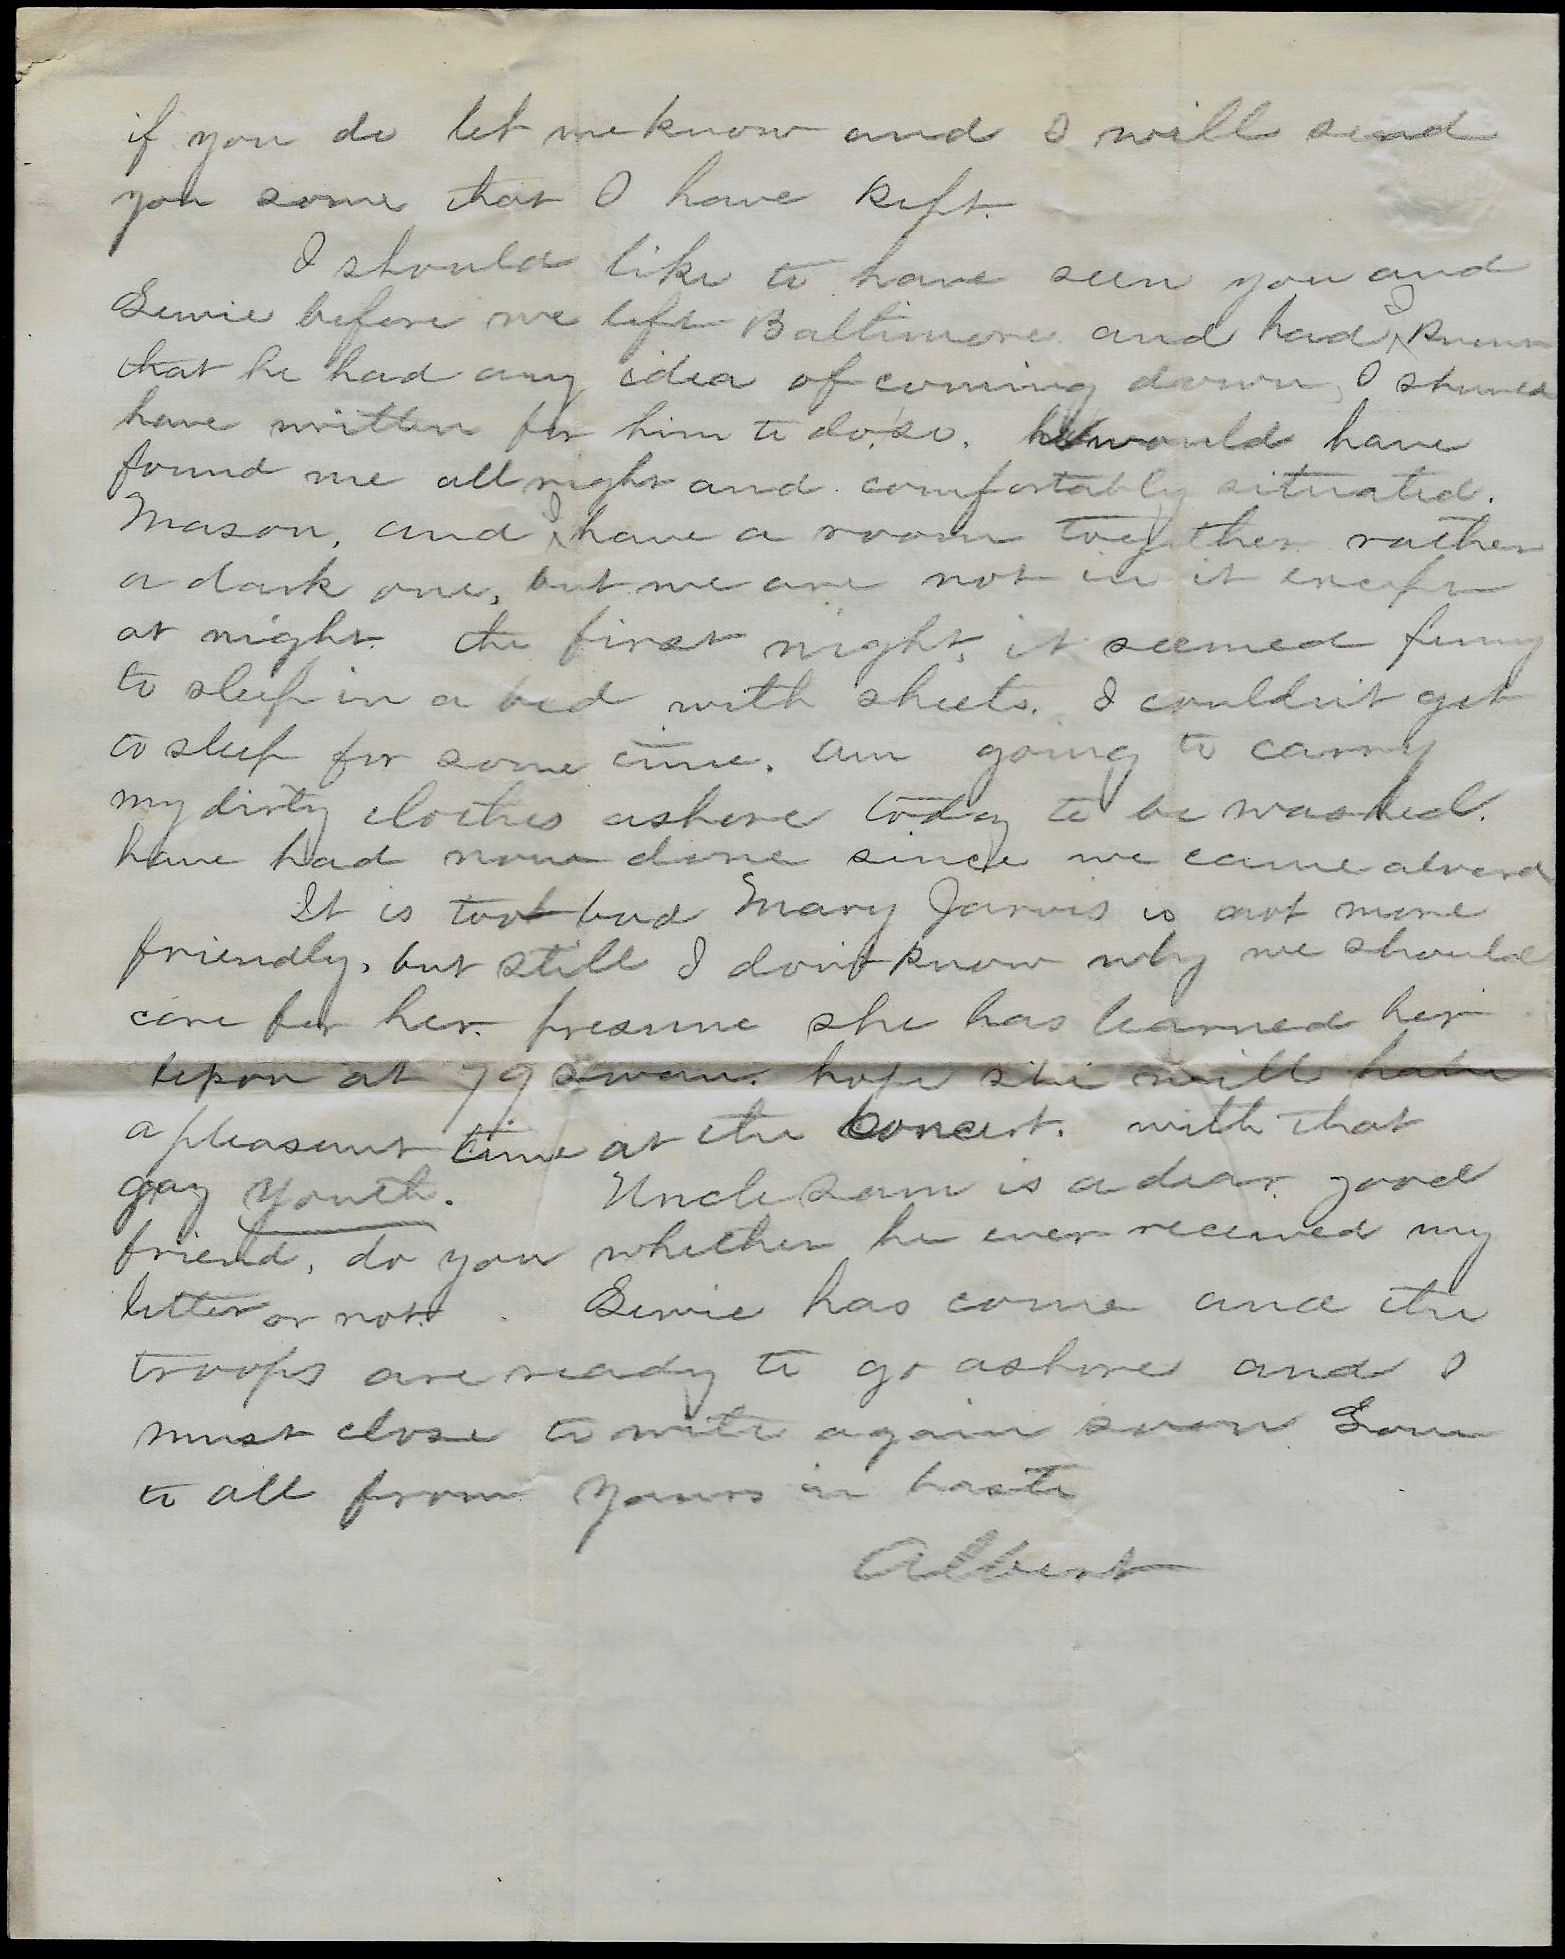 if you do let me know and I will send
you some that I have kept.
I should like to have seen you and
Gennie before we left Baltimore and had I known
that he had any idea of coming down, I should
have written for him to do so. he would have
found me all right and comfortably situated.
Mason, and I have a room together rather
a dark one, but we are not in it except
at night. the first night, it seemed funny
to sleep in a bed with sheets. I couldn't get
to sleep for some time. am going to carry
my dirty clothes ashore today to be washed.
have had none done since we came aboard
It is too bad Mary Jarvis is not more
friendly, but still I don't know why we should
care for her. presume she has learned her
at 79 hope she will have
a pleasant time at the Concert. with that
gay youth. Uncle Sam is a dear good
friend, do you whether he ever received my
letter or not. has come and the
troops are ready to go ashore and I
must close to write again soon Love
to all from Yours in haste
Albert